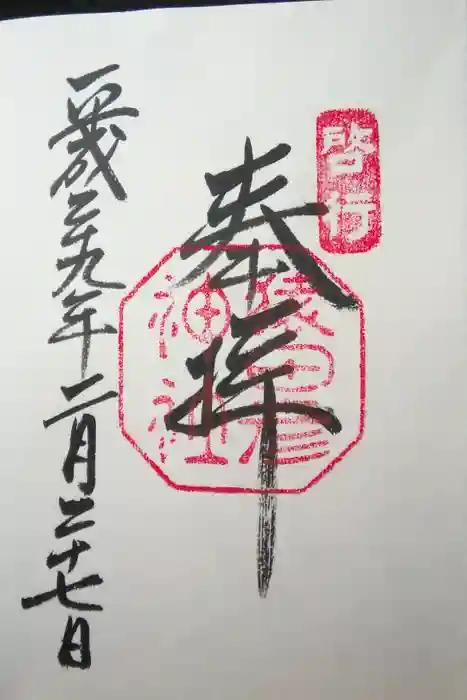 啓行
奉拝
猿田彦
神社
平成二十九年二月二十七日